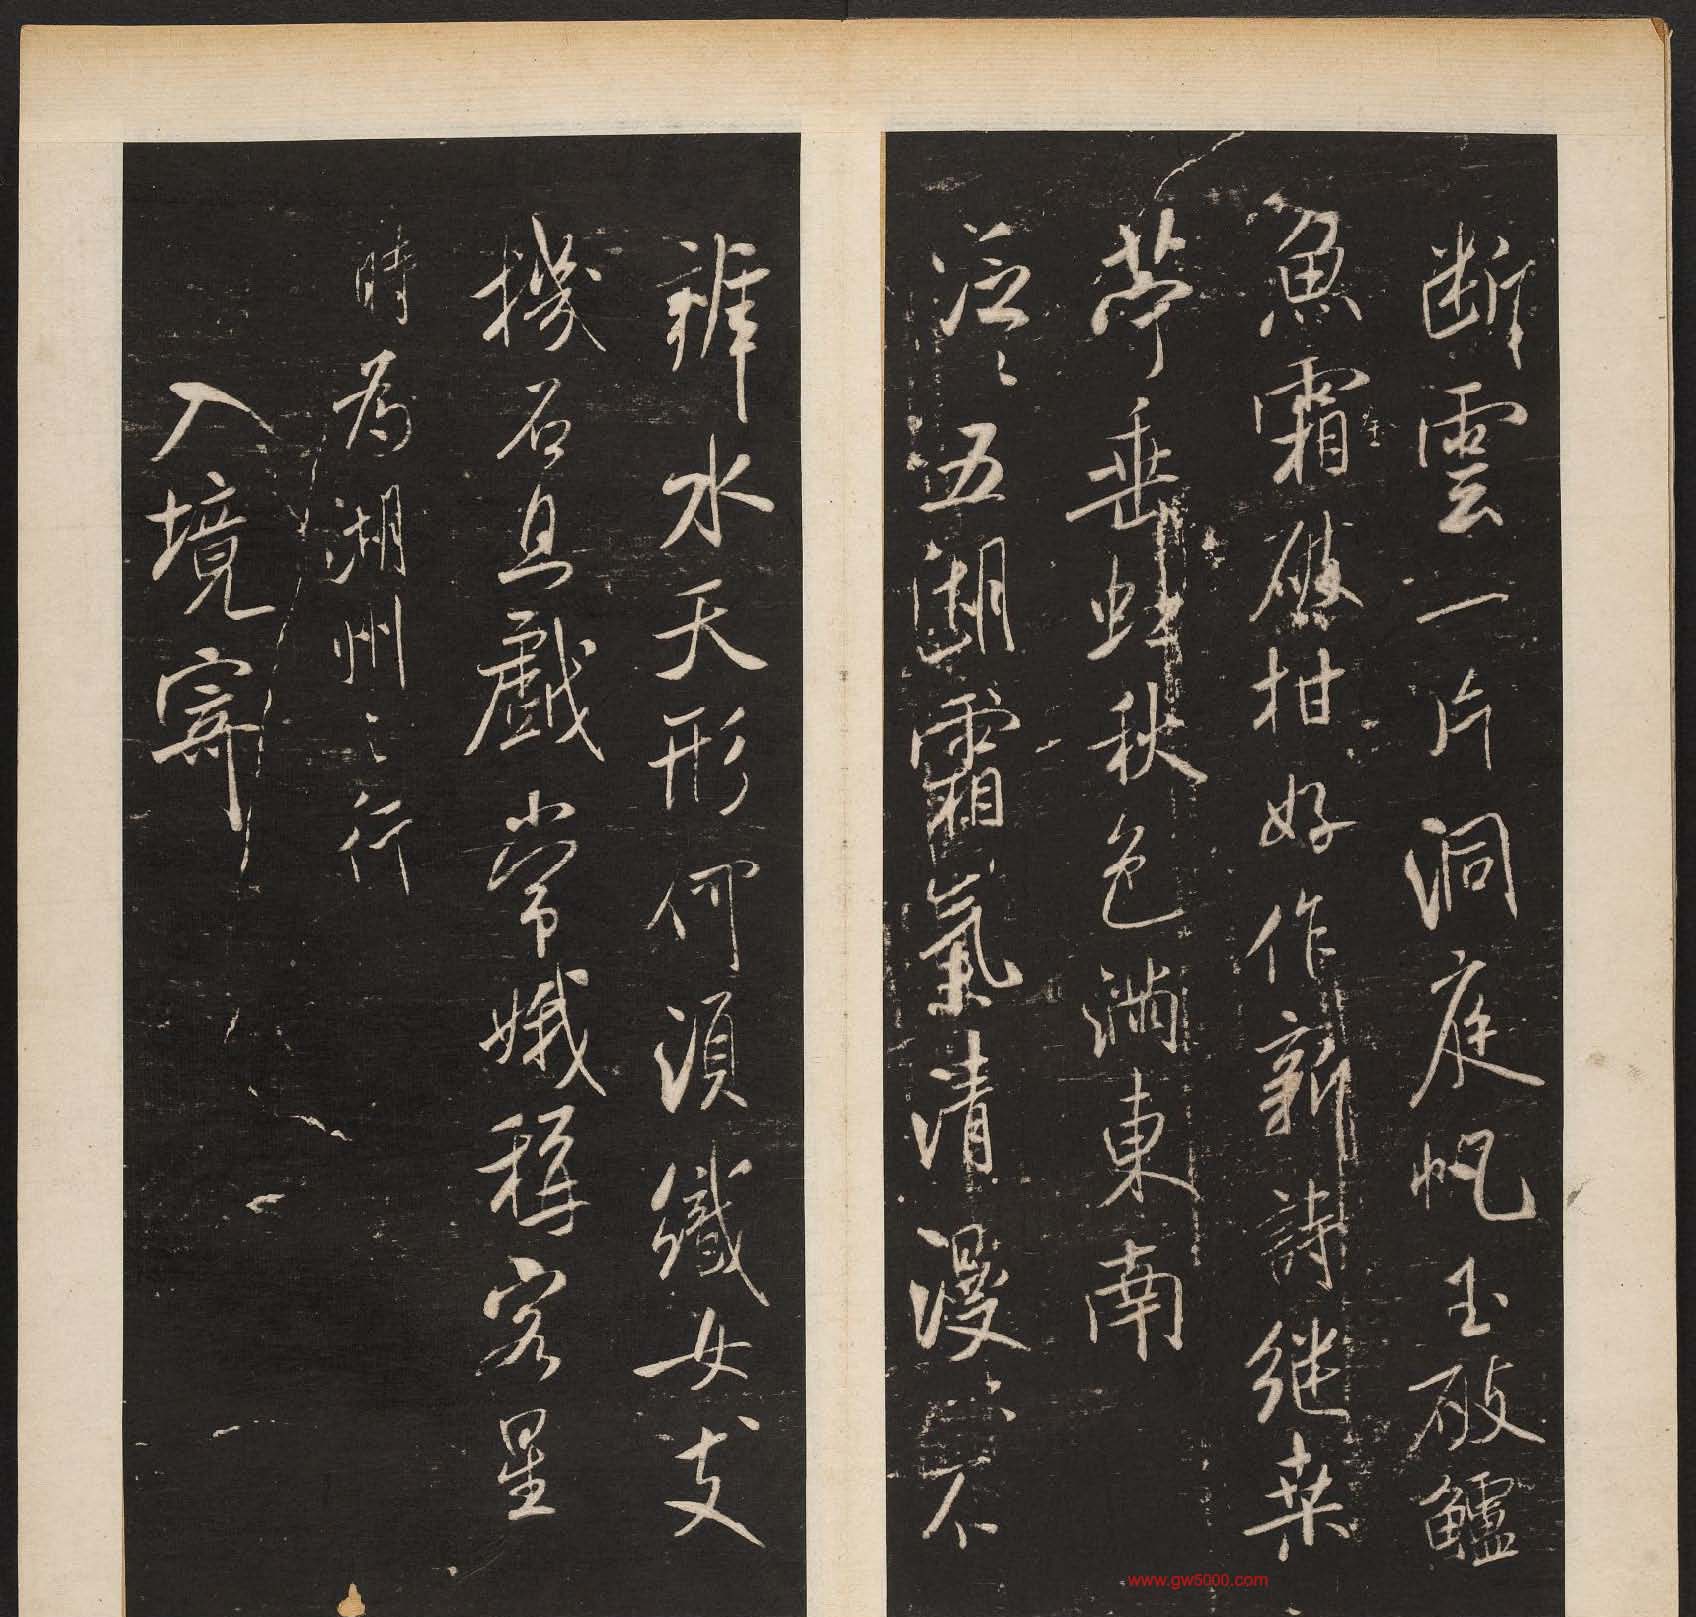 断雲一片洞庭帆玉破鱸
魚霜破柑好作新詩継桒
苧垂虹秋色満東南
金
泛〻五湖霜氣清漫〻不
辨水天形何須織女支
機石且戲常娥稱客星
時為湖州之行
入境寄
www.gw5000.com